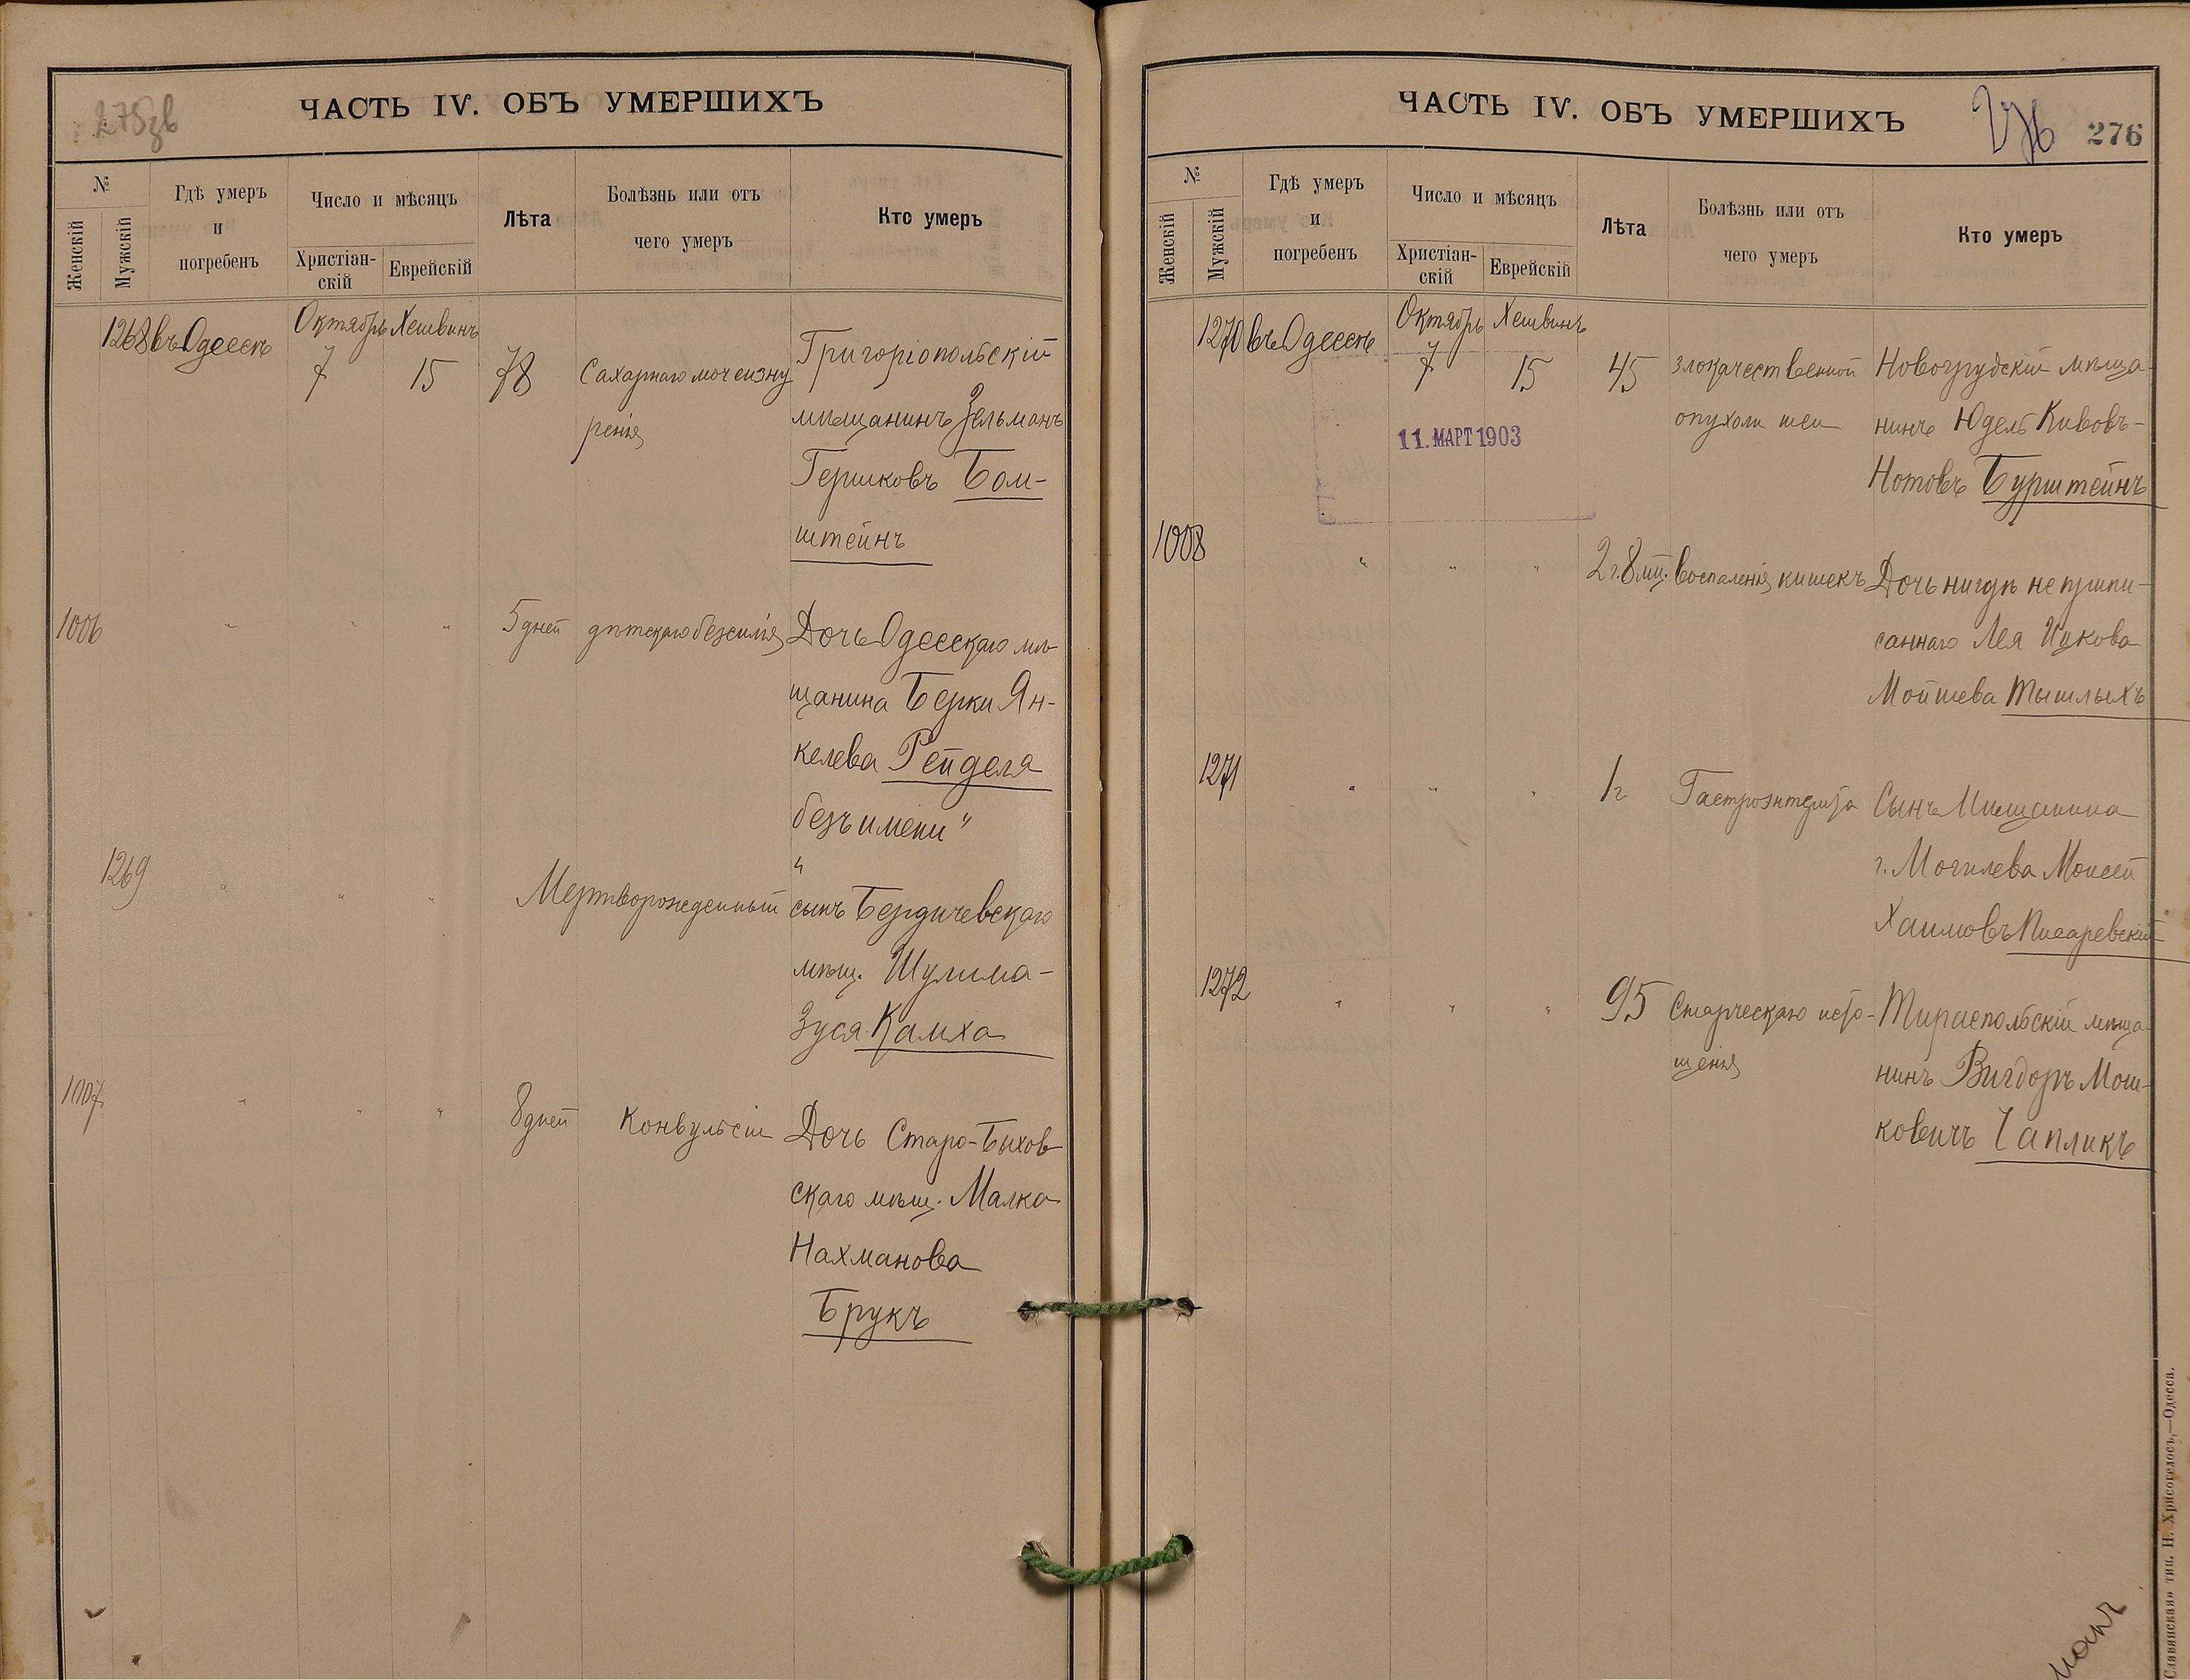 275зв
ЧАСТЬ IV. ОБЪ УМЕРШИХЪ
№
Женскій
Мужскій
Гдѣ умеръ
и
погребенъ
Число и мѣсяцъ
Христіан-
скій
Еврейскій
Лѣта
Болѣзнь или отъ
чего умеръ
Кто умеръ
1268 въ Одессѣ
Октябрь Хешвинъ
7 15 78
Сахарнаго мочеизну
ренія
Григоріопольскій
мѣщанинъ Зельманъ
Гершковъ Бом-
штейнъ
1006 " " " 5 дней дѣтскаго безсилія
Дочь Одесскаго мѣ
щанина Берки Ян-
келева Рейделя
безъ имени "
1269 " " " Мертворожденный
"
сынъ Бердичевскаго
мѣщ. Шулима-
Зуся Камха
1007 " " " 8 дней Конвульсіи
Дочь Старо-Быхов
скаго мѣщ. Малка
Нахманова
Брукъ
ЧАСТЬ IV. ОБЪ УМЕРШИХЪ
276
№
Женскій
Мужскій
Гдѣ умеръ
и
погребенъ
Число и мѣсяцъ
Христіан-
скій
Еврейскій
Лѣта
Болѣзнь или отъ
чего умеръ
Кто умеръ
1270 въ Одессѣ
Октябрь Хешвинъ
7 15 45
злокачественной
опухоли шеи
Новогрудскій мѣща
нинъ Юдель Кивовъ-
Нотовъ Бурштейнъ
11. МАРТ 1903
1008 " " " 2 г. 8 мц. воспаленія кишекъ
Дочь нигдѣ не припи-
саннаго Лея Ицкова
Мойшева Тышлыхъ
1271 " " " 1 г Гастроэнтерита
Сынъ Мѣщанина
г. Могилева Моисей
Хаимовъ Писаревскій
1272 " " " 95 Старческаго исто-
щенія
Тираспольскій мѣща-
нинъ Вигдоръ Мош-
ковичъ Чапликъ
Славянская» тип. Н. Хрисогелосъ,—Одесса.